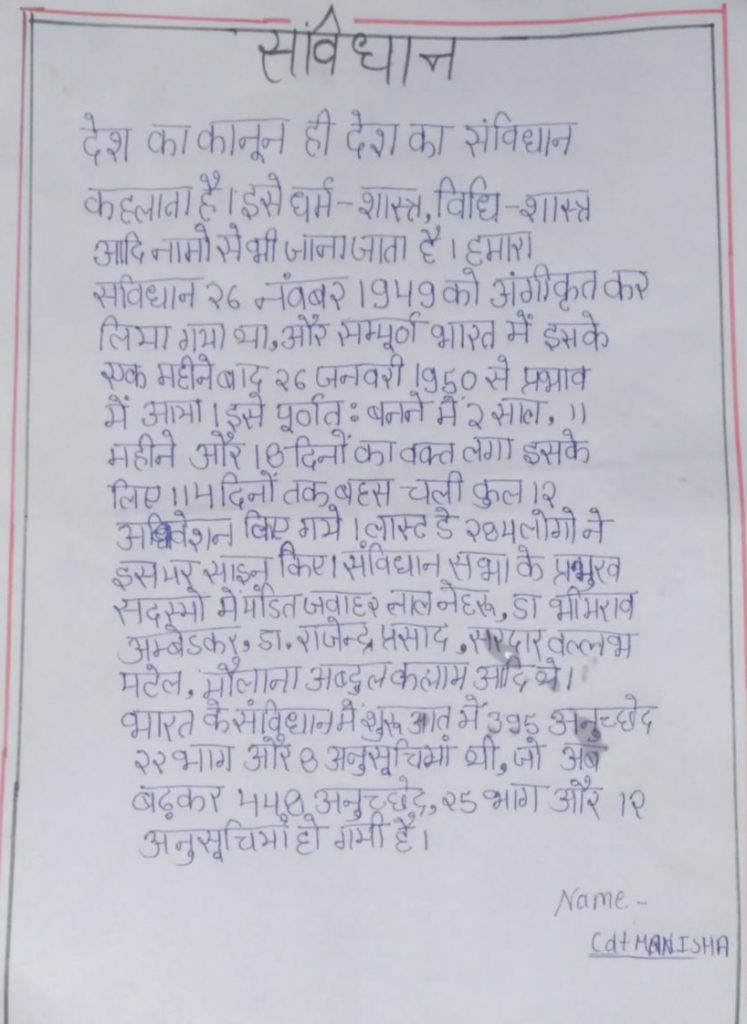 संविधान
देश का कानून ही देश का संविधान
कहलाता है। इसे धर्म-शास्त्र, विधि-शास्त्र
आदि नामो से भी जाना जाता है। हमारा
सविधान २६ नंवबर 1949 को अंगीकृत कर
लिया गया था, और सम्पूर्ण भारत में इसके
एक महीने बाद २६ जनवरी 1950 से प्रभाव
में आया। इसे पूर्णत: बनने में २ साल, 11
महीने और 18 दिनों का वक्त लगा इसके
लिए 114 दिनों तक बहस चली कुल 1२
अधिवेशन किए गये। लास्ट डे २84 लोगो ने
इस पर साइन किए। संविधान सभा के प्रमुख
सदस्यो में पंडित जवाहर लाल नेहरू, डा भीमराव
अम्बेडकर, डा. राजेन्द्र प्रसाद, सरदार वल्लभ
पटेल, मौलाना अब्दुल कलाम आदि थे।
भारत के संविधान मे शुरूआत में 395 अनुच्छेद
२२ भाग और 8 अनुसूचियां थी, जो अब
बढ़कर 448 अनुच्छेद, २5 भाग और 1२
अनुसूचियां हो गयी है।
Name -
Cdt MANISHA